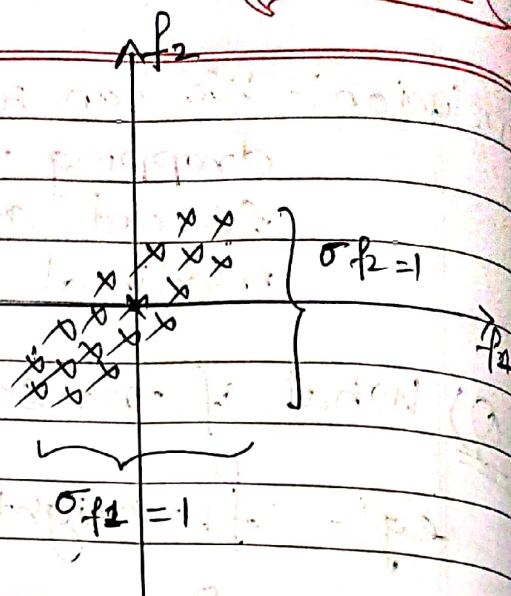 f2
σf2=1
f1
σf1=1